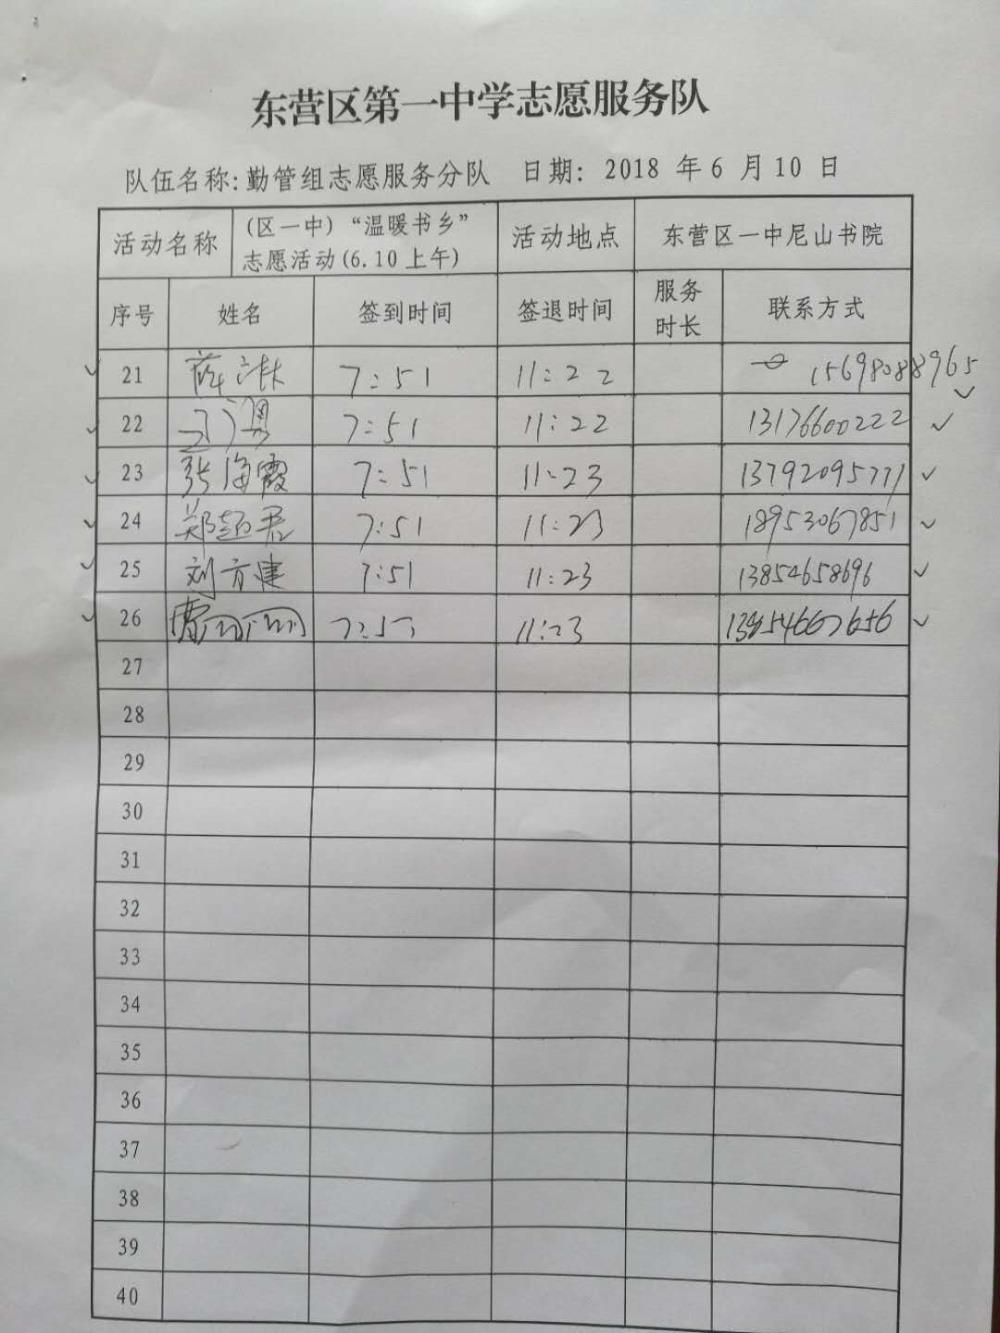 东营区第一中学志愿服务队
队伍名称:勤管组志愿服务分队 日期: 2018 年 6 月 10 日
活动名称 (区一中)“温暖书乡” 活动地点 东营区一中尼山书院
志愿活动(6.10上午)
序号 姓名 签到时间 签退时间 服务时长 联系方式
21 7:51 11:22 15698088965
22 7:51 11:22 13176600222
23 张海霞 7:51 11:23 13792095771
24 郑超君 7:51 11:23 18953067851
25 刘方建 7:51 11:23 13854658696
26 11:23
27
28
29
30
31
32
33
34
35
36
37
38
39
40